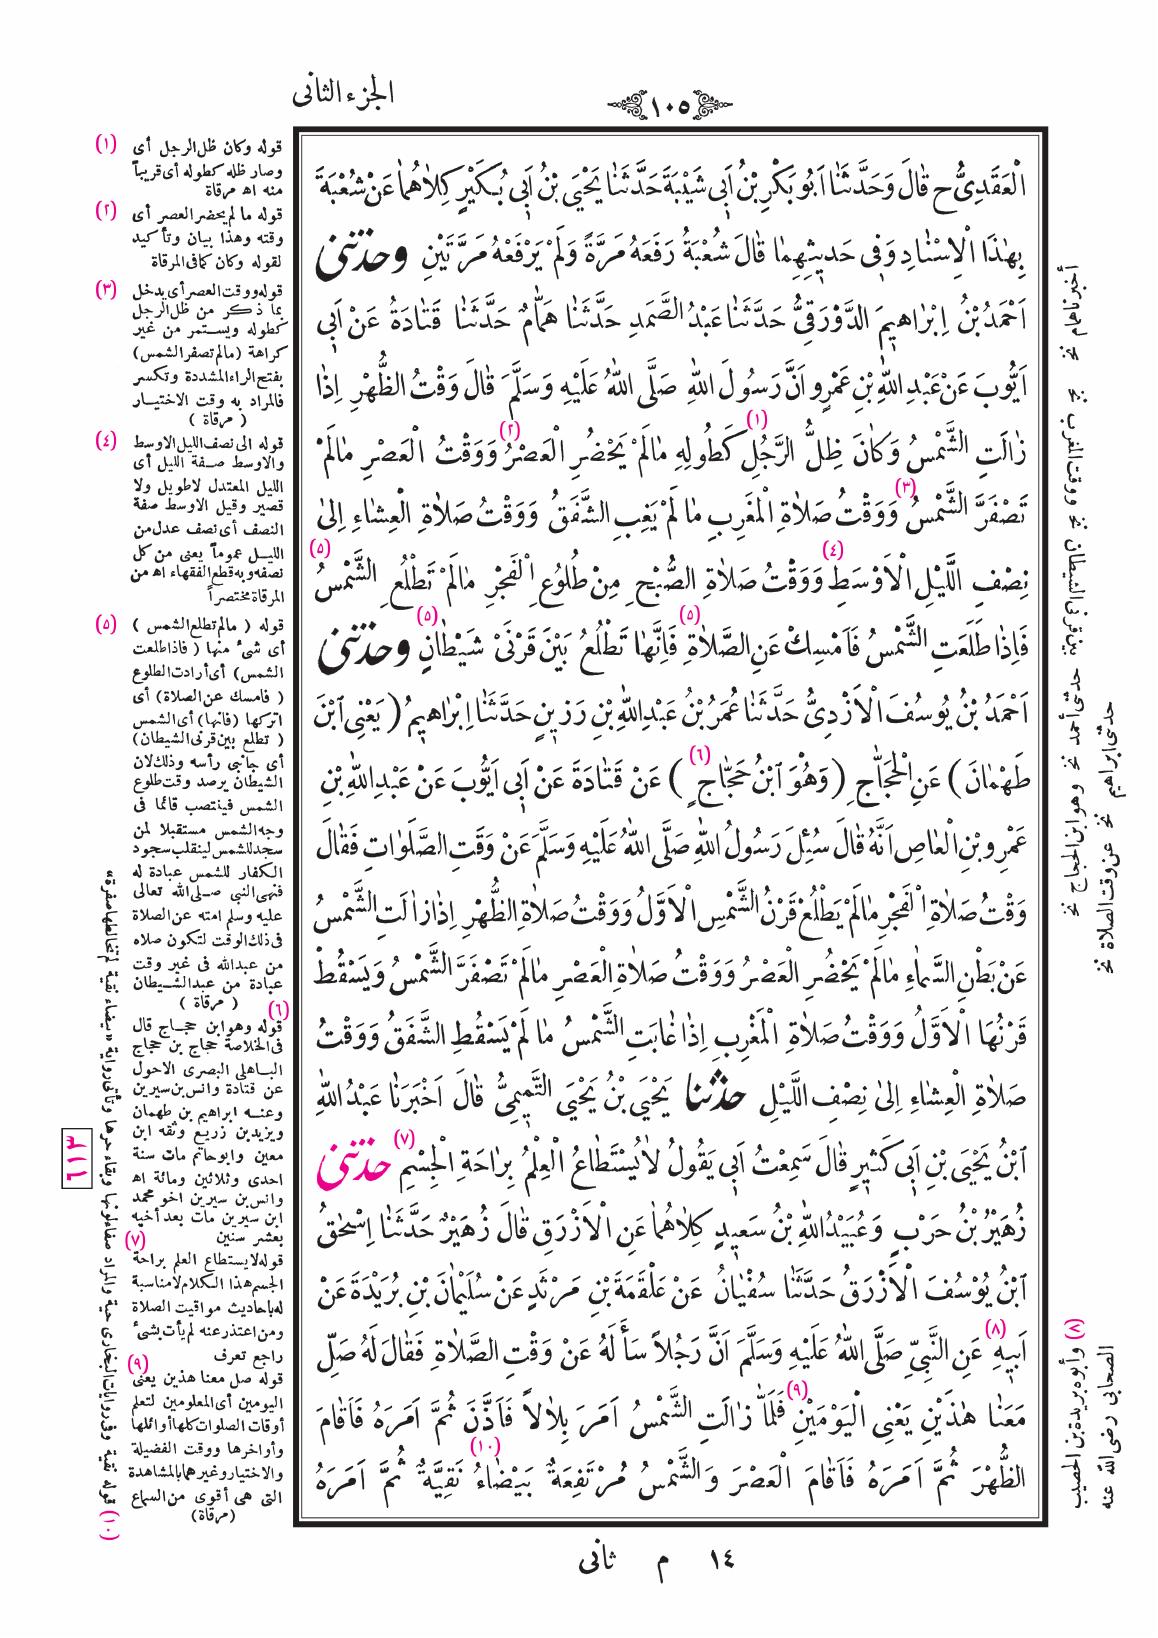 ١٠٥
الجزء الثانى
الْعَقَدِىُّ ح قَالَ وَحَدَّثَنَا اَبُو بَكْرِ بْنُ اَبِى شَيْبَةَ حَدَّثَنَا يَحْيَى بْنُ اَبِى بُكَيْرٍ كِلَاهُمَا عَنْ شُعْبَةَ
بِهٰذَا الْاِسْنَادِ وَفِى حَدِيثِهِمَا قَالَ شُعْبَةُ رَفَعَهُ مَرَّةً وَلَمْ يَرْفَعْهُ مَرَّتَيْنِ وحدثنى
اَحْمَدُ بْنُ اِبْرَاهِيمَ الدَّوْرَقِىُّ حَدَّثَنَا عَبْدُ الصَّمَدِ حَدَّثَنَا هَمَّامٌ حَدَّثَنَا قَتَادَةُ عَنْ اَبِى
اَيُّوبَ عَنْ عَبْدِ اللّٰهِ بْنِ عَمْرٍو اَنَّ رَسُولَ اللّٰهِ صَلَّى اللّٰهُ عَلَيْهِ وَسَلَّمَ قَالَ وَقْتُ الظُّهْرِ اِذَا
زَالَتِ الشَّمْسُ وَكَانَ ظِلُّ الرَّجُلِ (١) كَطُولِهِ مَالَمْ يَحْضُرِ الْعَصْرُ (٢) وَوَقْتُ الْعَصْرِ مَالَمْ
تَصْفَرَّ الشَّمْسُ (٣) وَوَقْتُ صَلَاةِ الْمَغْرِبِ مَا لَمْ يَغِبِ الشَّفَقُ وَوَقْتُ صَلَاةِ الْعِشَاءِ اِلَى
نِصْفِ اللَّيْلِ الْاَوْسَطِ (٤) وَوَقْتُ صَلَاةِ الصُّبْحِ مِنْ طُلُوعِ الْفَجْرِ مَالَمْ تَطْلُعِ الشَّمْسُ (٥)
فَاِذَا طَلَعَتِ الشَّمْسُ فَاَمْسِكْ عَنِ الصَّلَاةِ (٥) فَاِنَّهَا تَطْلُعُ بَيْنَ قَرْنَىْ شَيْطَانٍ (٥) وحدثنى
اَحْمَدُ بْنُ يُوسُفَ الْاَزْدِىُّ حَدَّثَنَا عُمَرُ بْنُ عَبْدِ اللّٰهِ بْنِ رَزِينٍ حَدَّثَنَا اِبْرَاهِيمُ (يَعْنِى ابْنَ
طَهْمَانَ) عَنِ الْحَجَّاجِ (وَهُوَ ابْنُ حَجَّاجٍ (٦)) عَنْ قَتَادَةَ عَنْ اَبِى اَيُّوبَ عَنْ عَبْدِ اللّٰهِ بْنِ
عَمْرِو بْنِ الْعَاصِ اَنَّهُ قَالَ سُئِلَ رَسُولُ اللّٰهِ صَلَّى اللّٰهُ عَلَيْهِ وَسَلَّمَ عَنْ وَقْتِ الصَّلَوَاتِ فَقَالَ
وَقْتُ صَلَاةِ الْفَجْرِ مَالَمْ يَطْلُعْ قَرْنُ الشَّمْسِ الْاَوَّلُ وَوَقْتُ صَلَاةِ الظُّهْرِ اِذَا زَالَتِ الشَّمْسُ
عَنْ بَطْنِ السَّمَاءِ مَالَمْ يَحْضُرِ الْعَصْرُ وَوَقْتُ صَلَاةِ الْعَصْرِ مَالَمْ تَصْفَرَّ الشَّمْسُ وَيَسْقُطْ
قَرْنُهَا الْاَوَّلُ وَوَقْتُ صَلَاةِ الْمَغْرِبِ اِذَا غَابَتِ الشَّمْسُ مَا لَمْ يَسْقُطِ الشَّفَقُ وَوَقْتُ
صَلَاةِ الْعِشَاءِ اِلَى نِصْفِ اللَّيْلِ حدثنا يَحْيَى بْنُ يَحْيَى التَّمِيمِىُّ قَالَ اَخْبَرَنَا عَبْدُ اللّٰهِ
ابْنُ يَحْيَى بْنِ اَبِى كَثِيرٍ قَالَ سَمِعْتُ اَبِى يَقُولُ لَا يُسْتَطَاعُ الْعِلْمُ بِرَاحَةِ الْجِسْمِ (٧) حدثنى
زُهَيْرُ بْنُ حَرْبٍ وَعُبَيْدُ اللّٰهِ بْنُ سَعِيدٍ كِلَاهُمَا عَنِ الْاَزْرَقِ قَالَ زُهَيْرٌ حَدَّثَنَا اِسْحٰقُ
ابْنُ يُوسُفَ الْاَزْرَقُ حَدَّثَنَا سُفْيَانُ عَنْ عَلْقَمَةَ بْنِ مَرْثَدٍ عَنْ سُلَيْمَانَ بْنِ بُرَيْدَةَ عَنْ
اَبِيهِ (٨) عَنِ النَّبِىِّ صَلَّى اللّٰهُ عَلَيْهِ وَسَلَّمَ اَنَّ رَجُلاً سَأَلَهُ عَنْ وَقْتِ الصَّلَاةِ فَقَالَ لَهُ صَلِّ
مَعَنَا هٰذَيْنِ يَعْنِى الْيَوْمَيْنِ (٩) فَلَمَّا زَالَتِ الشَّمْسُ اَمَرَ بِلَالاً فَاَذَّنَ ثُمَّ اَمَرَهُ فَاَقَامَ
الظُّهْرَ ثُمَّ اَمَرَهُ فَاَقَامَ الْعَصْرَ وَالشَّمْسُ مُرْتَفِعَةٌ بَيْضَاءُ (١٠) نَقِيَّةٌ ثُمَّ اَمَرَهُ
(١) قوله وكان ظل الرجل أى
وصار ظله كطوله أى قريباً
منه اه مرقاة
(٢) قوله ما لم يحضر العصر أى
وقته وهذا بيان وتأكيد
لقوله وكان كما فى المرقاة
(٣) قوله ووقت العصر أى يدخل
بما ذكر من ظل الرجل
كطوله ويستمر من غير
كراهة (مالم تصفر الشمس)
بفتح الراء المشددة وتكسر
فالمراد به وقت الاختيار
(مرقاة)
(٤) قوله الى نصف الليل الاوسط
والاوسط صفة الليل أى
الليل المعتدل لا طويل ولا
قصير وقيل الاوسط صفة
النصف أى نصف عدل من
الليل عموماً يعنى من كل
نصفه وبه قطع الفقهاء اه من
المرقاة مختصراً
(٥) قوله (مالم تطلع الشمس)
أى شىء منها (فاذا طلعت
الشمس) أى أرادت الطلوع
(فامسك عن الصلاة) أى
اتركها (فانها) أى الشمس
(تطلع بين قرنى الشيطان)
أى جانبى رأسه وذلك لان
الشيطان يرصد وقت طلوع
الشمس فينتصب قائما فى
وجه الشمس مستقبلا لمن
سجد للشمس لينقلب سجود
الكفار للشمس عبادة له
فنهى النبى صلى الله تعالى
عليه وسلم امته عن الصلاة
فى ذلك الوقت لتكون صلاه
من عبدالله فى غير وقت
عبادة من عبد الشيطان
(مرقاة)
(٦) قوله وهو ابن حجاج قال
فى الخلاصة حجاج بن حجاج
الباهلى البصرى الاحول
عن قتادة وانس بن سيرين
وعنه ابراهيم بن طهمان
ويزيد بن زريع وثقه ابن
معين وابوحاتم مات سنة
احدى وثلاثين ومائة اه
وانس بن سيرين اخو محمد
ابن سيرين مات بعد أخيه
بعشر سنين
(٧) قوله لا يستطاع العلم براحة
الجسم هذا الكلام لا مناسبة
له باحاديث مواقيت الصلاة
ومن اعتذر عنه لم يأت بشىء
راجع تعرف
(٩) قوله صل معنا هذين يعنى
اليومين أى المعلومين لتعلم
أوقات الصلوات كلها أوائلها
وأواخرها ووقت الفضيلة
والاختيار وغيرهما بالمشاهدة
التى هى أقوى من السماع
(مرقاة)
(١٠) قوله نقية وفى روايات البخارى حية والمراد صفاء لونها وبقاء حرها وتأتى رواية «بيضاء نقية لم تخالطها صفرة»
٦١٣
أخبرنا همام نخ
ووقت المغرب نخ
بين قرنى الشيطان نخ
حدثنى أحمد نخ
وهو ابن الحجاج نخ
حدثنى ابراهيم نخ
عن وقت الصلاة نخ
(٨) وأبوه بريدة بن الحصيب
الصحابى رضى الله عنه
١٤ م ثانى